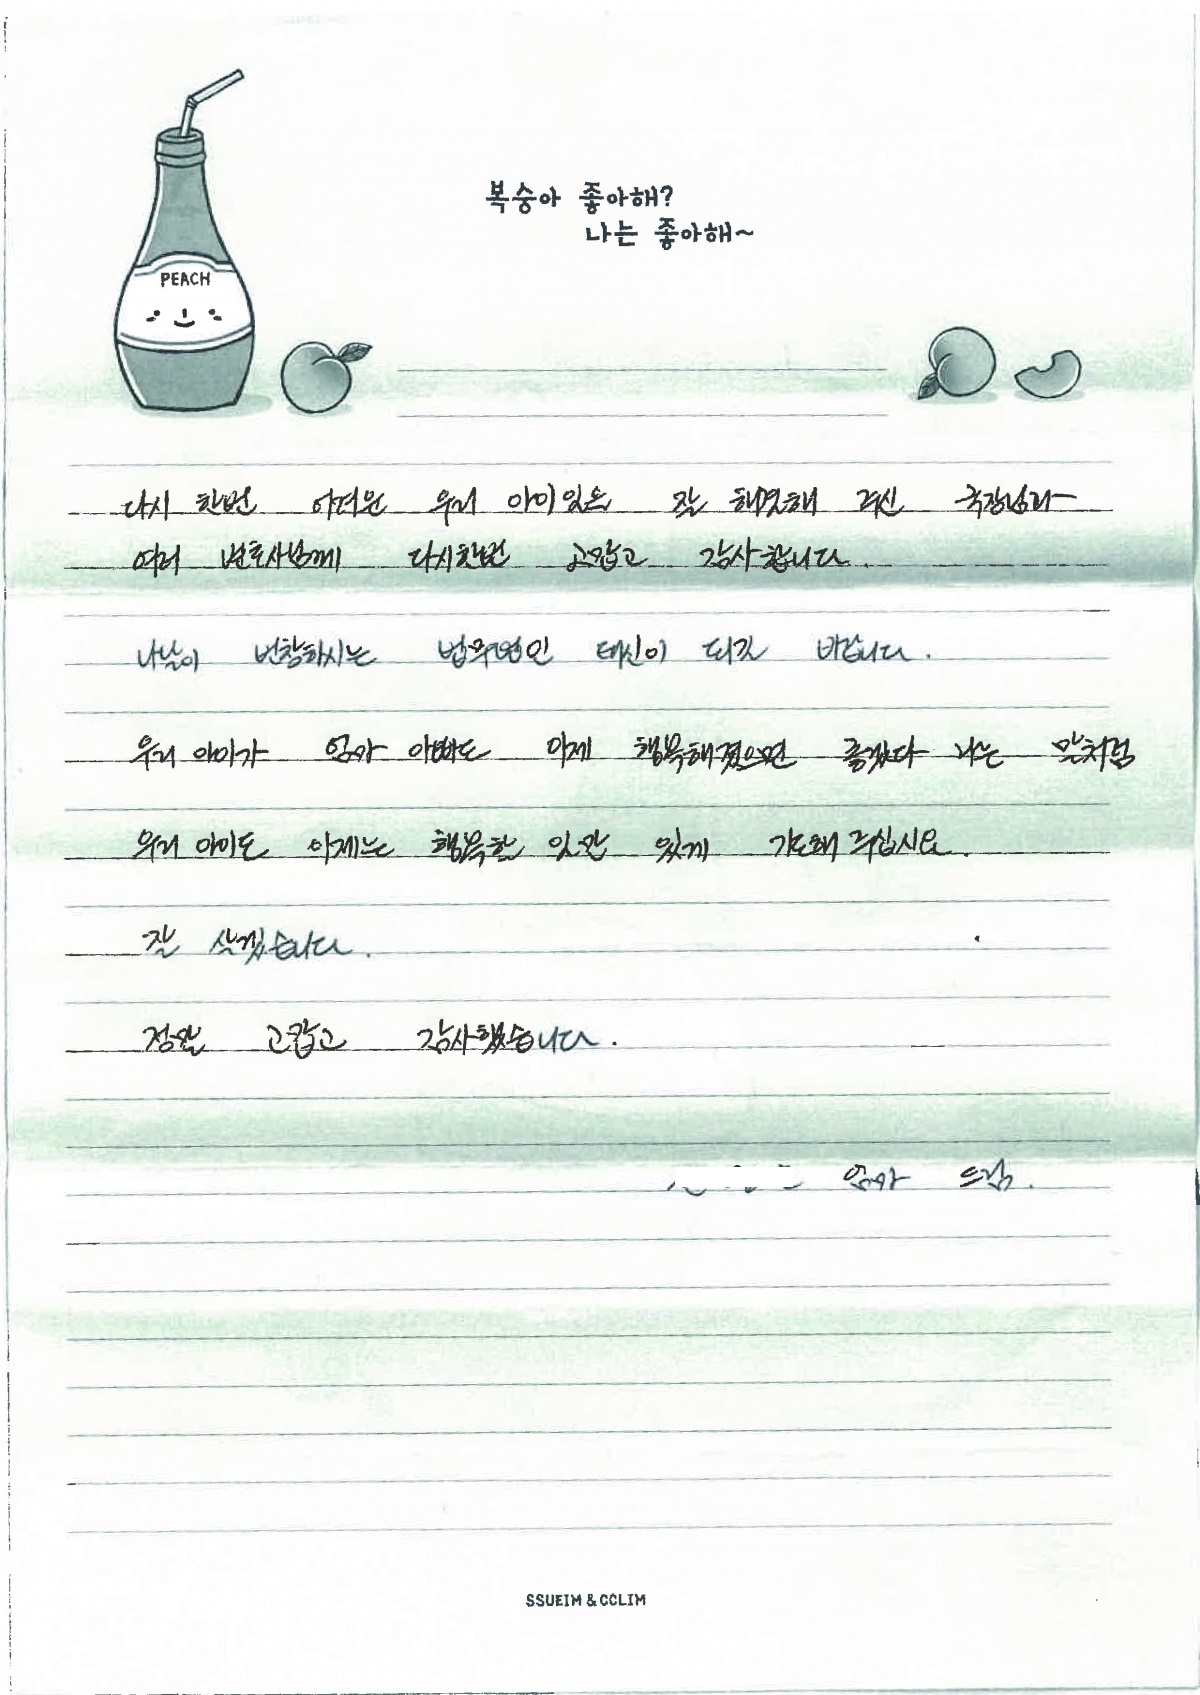 복숭아 좋아해?
나는 좋아해~
PEACH
다시 한번 어려운 우리 아이일을 잘 해결해 주신 국장님과
여러 변호사님께 다시한번 고맙고 감사합니다.
나날이 번창하시는 바랍니다.
우리 아이가 엄마 아빠도 이제 행복해졌으면 좋겠다 나는 말처럼
우리 아이도 이제는 행복한 있게 기도해 주십시요.
잘 살겠습니다.
정말 고맙고 감사했습니다.
엄마 드림.
SSUEIM & CCLIM